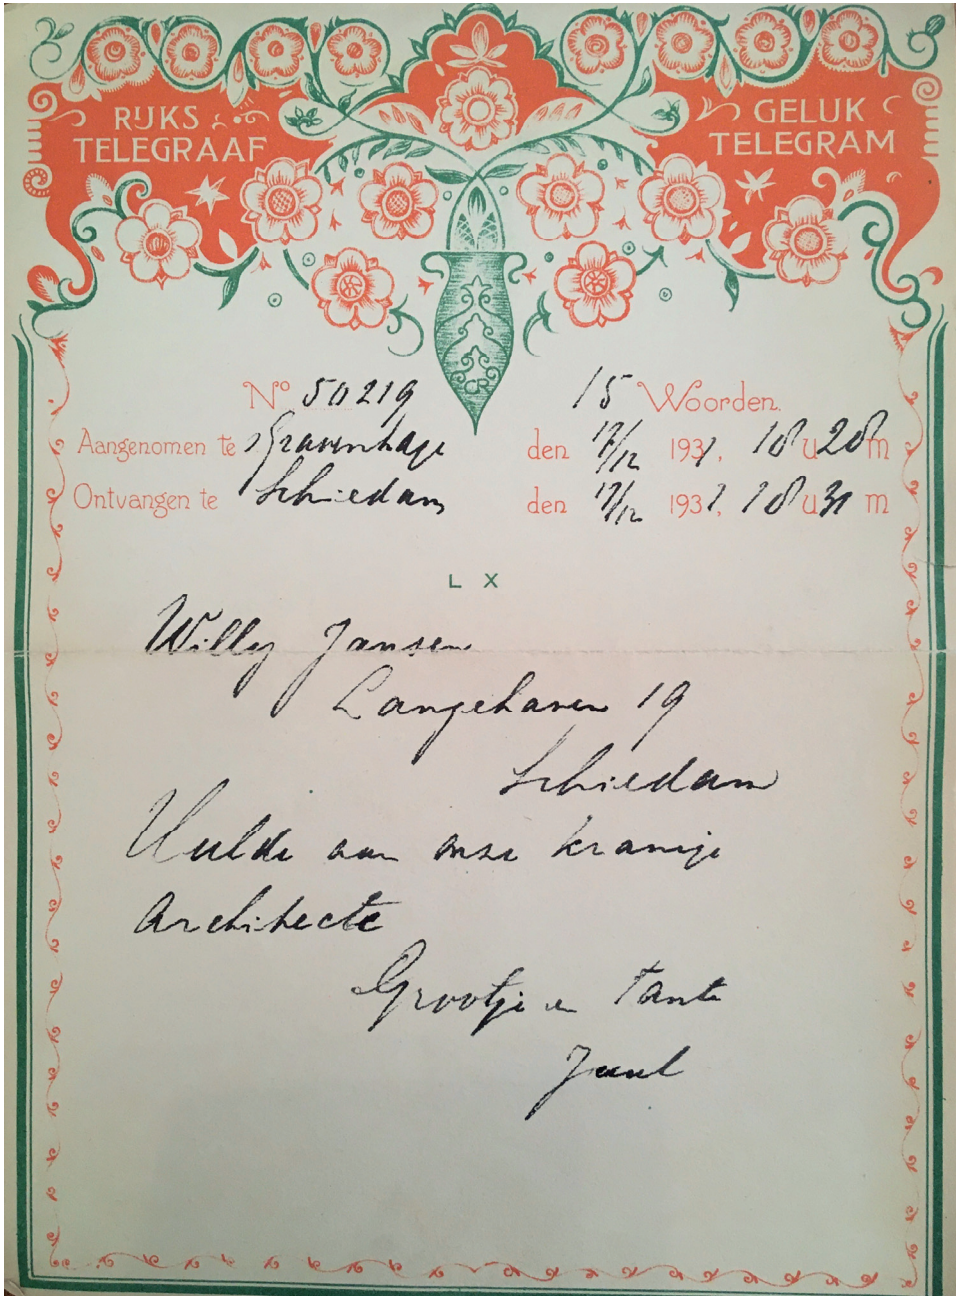 RIJKS
TELEGRAAF
GELUK
TELEGRAM
CR
Nº 50219 15 Woorden.
Aangenomen te 's Gravenhage den 17/12 1931, 18 u 28 m
Ontvangen te Schiedam den 17/12 1931, 18 u 31 m
L X
Willy Jansen
Langehaven 19
Schiedam
Hulde aan onze kranige
Architecte
Grootje en Tante
Juul